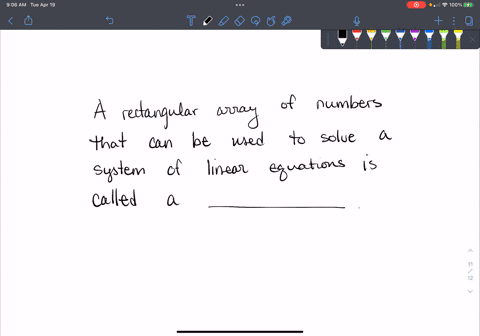 9:06 AM Tue Apr 19
100%
A rectangular array of numbers
that can be used to solve a
system of linear equations is
called a ____________.
11
/
12